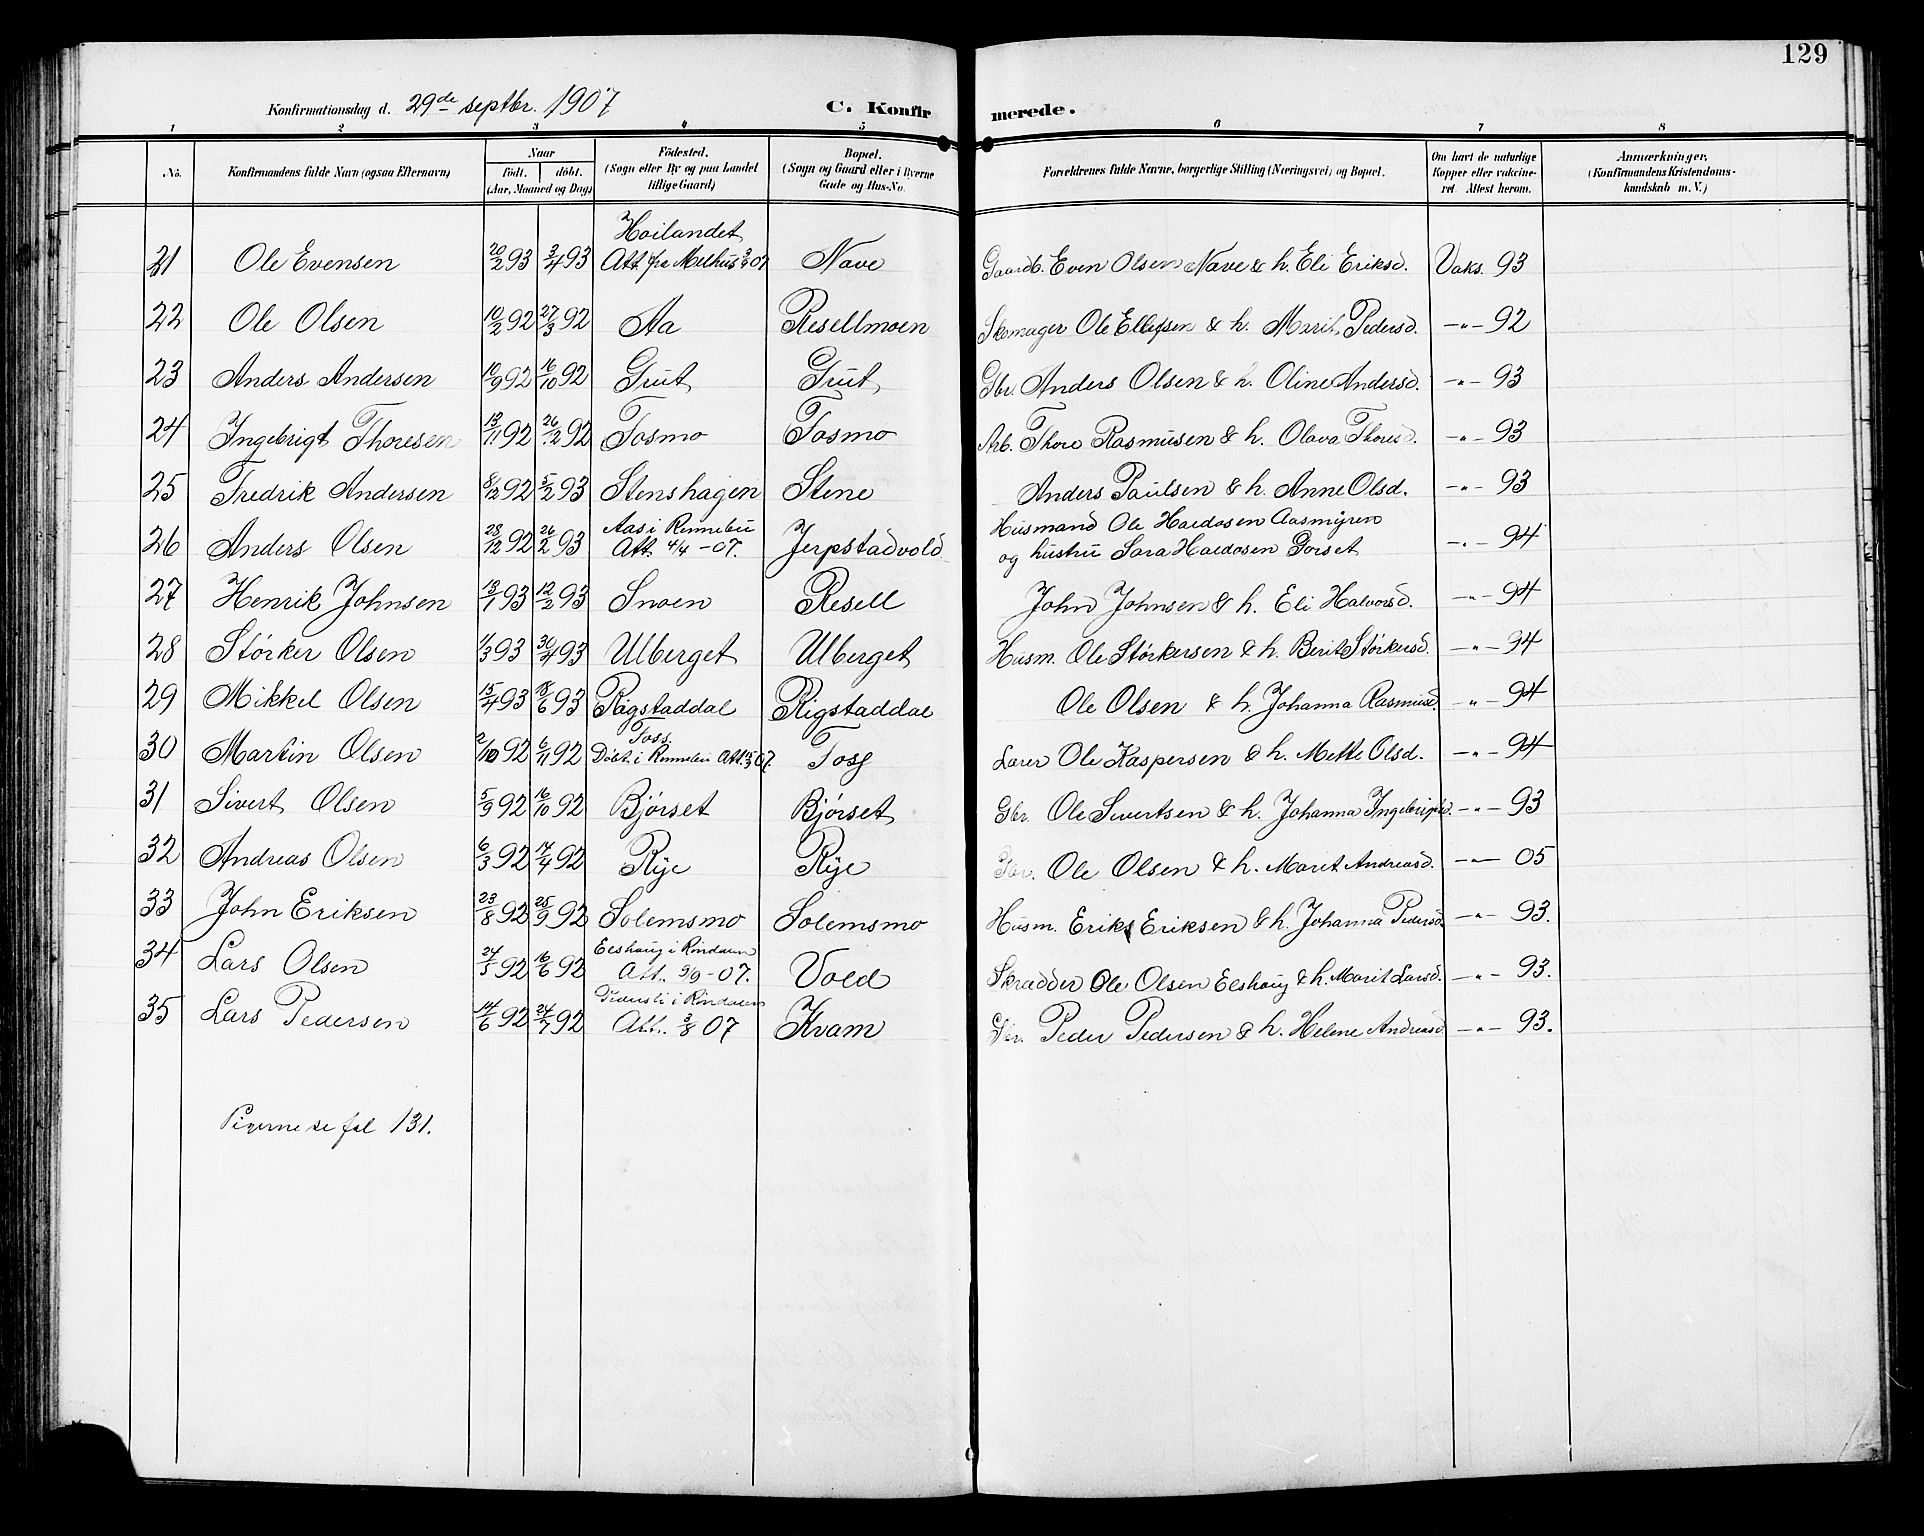 129
Konfirmationsdag d. 29de septbr. 1907 C. Konfirmerede.
1 2 3 4 5 6 7 8
No. Konfirmandens fulde Navn (ogsaa Efternavn) Naar født. døbt. (Aar, Maaned og Dag) Fødested. (Sogn eller By og paa Landet tillige Gaard) Bopæl. (Sogn og Gaard eller i Byerne Gade og Hus-No. Forældrenes fulde Navne, borgerlige Stilling (Næringsvei) og Bopæl. Om havt de naturlige Kopper eller vakcineret. Attest herom. Anmærkninger. (Konfirmandens Kristendomskundskab m. V.)
21 Ole Evensen 20/2 93 3/4 93 Hoilandet Att. fra Melhus 07 Nave Gaardb. Even Olsen Nave & h. Eli Eriksd. Vaks. 93
22 Ole Olsen 10/2 92 27/3 92 Aa Resellmoen Skomager Ole Ellefsen & h. Marit Pedersd. -"- 92
23 Anders Andersen 10/9 92 16/10 92 Gut Gut Gbr. Anders Olsen & h. Oline Andersd. -"- 93
24 Ingebrigt Thoresen 13/11 92 26/12 92 Fosmo Fosmo Arb. Thore Rasmusen & h. Olava Thoresd. -"- 93
25 Fredrik Andersen 8/12 92 5/2 93 Stenshagen Stene Anders Paulsen & h. Anne Olsd. -"- 93
26 Anders Olsen 28/12 92 26/2 93 Aas i Rennebu Att. 4/4 -07. Jerpstadvold Husmand Ole Haldosen Aasmyren
og hustru Sara Haldosen Gorset -"- 94
27 Henrik Johnsen 13/1 93 12/2 93 Snoen Resell John Johnsen & h. Eli Halvorsd. -"- 94
28 Størker Olsen 1/3 93 30/4 93 Ulberget Ulberget Husm. Ole Størkersen & h. Berit Størkersd. -"- 94
29 Mikkel Olsen 15/4 93 18/6 93 Rigstaddal Rigstaddal Ole Olsen & h. Johanna Rasmusd. -"- 94
30 Martin Olsen 2/10 92 6/11 92 Foss. Døbt i Rennebu Att. 07. Foss Lærer Ole Kaspersen & h. Mette Olsd. -"- 94
31 Sivert Olsen 5/9 92 16/10 92 Bjørset Bjørset Gbr. Ole Sivertsen & h. Johanna Ingebrigtsd. -"- 93
32 Andreas Olsen 6/3 92 14/4 92 Rye Rye Gbr. Ole Olsen & h. Marit Andreasd. -"- 05
33 John Eriksen 23/8 92 25/9 92 Solemsmo Solemsmo Husm. Erik Eriksen & h. Johanna Pedersd. -"- 93.
34 Lars Olsen 24/5 92 16/6 92 Elshaug i Rindalen Att. 9/9 -07. Vold Skrædder Ole Olsen Elshaug & h. Marit Larsd. -"- 93.
35 Lars Pedersen 14/6 92 24/7 92 Pedersli i Rindalen Att. 3/8 07 Kvam Gbr. Peder Pedersen & h. Helene Andreasd. -"- 93.
Pigerne se fol 131.